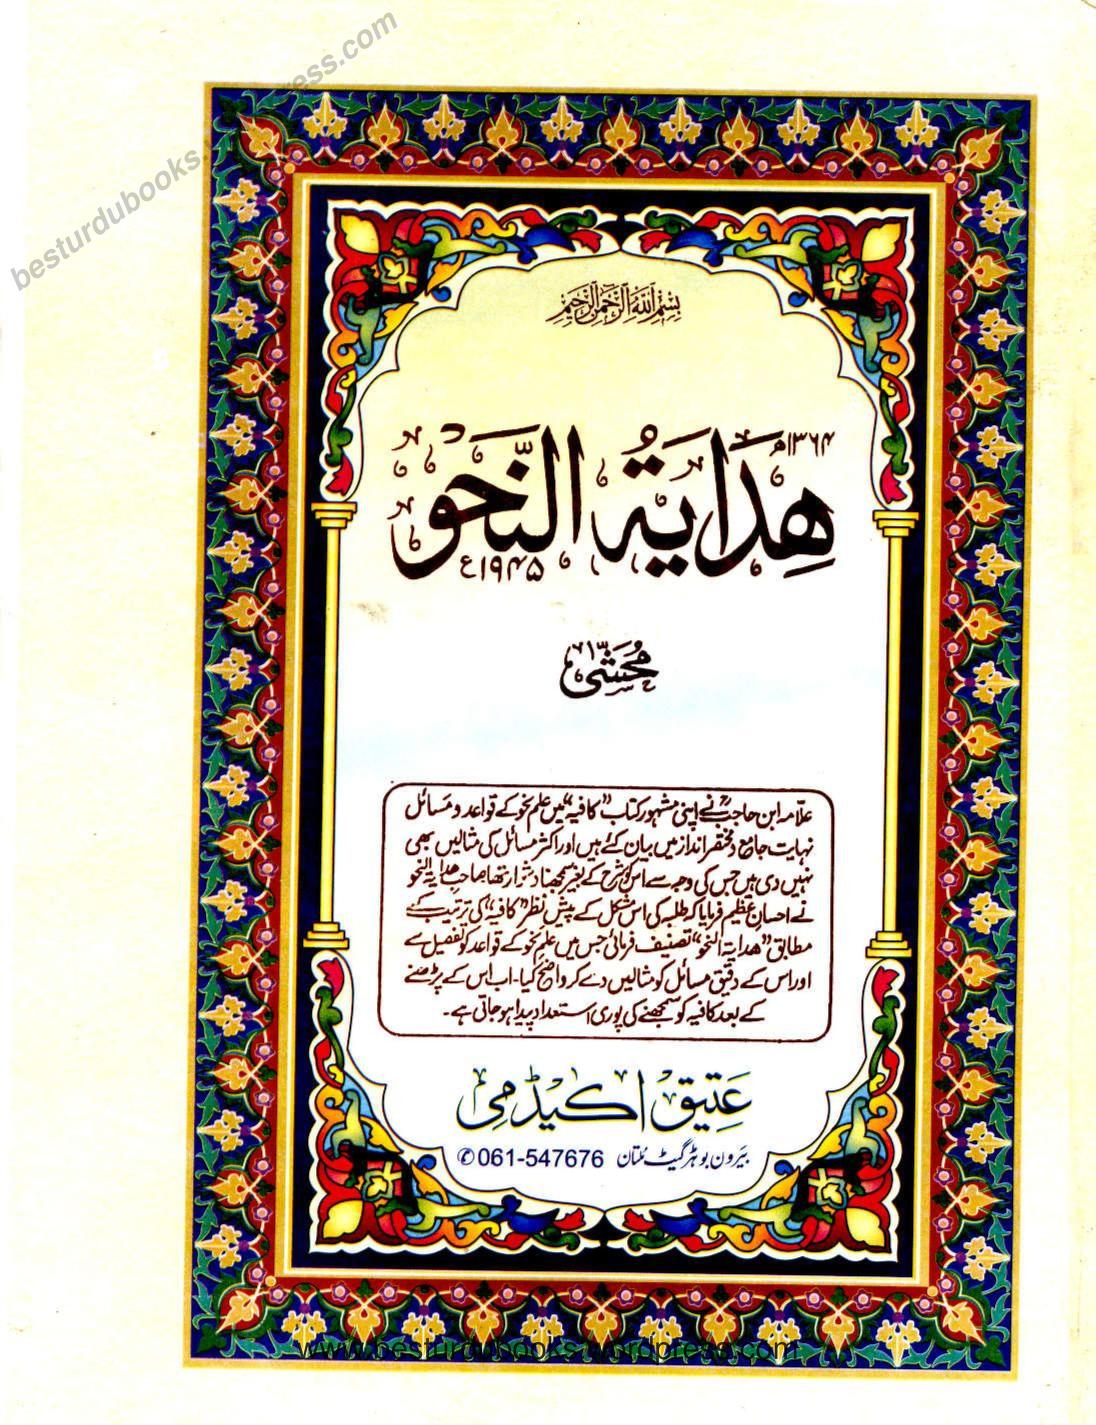 besturdubooks.wordpress.com
بِسْمِ اللهِ الرَّحْمٰنِ الرَّحِيْمِ
۱۳۶۴ھ
هِدَايَةُ النَّحَو
۱۹۴۵ء
مُحَشّٰی
علّامہ ابن حاجبؒ نے اپنی مشہور کتاب "کافیہ" میں علم نحو کے قواعد و مَسائل
نہایت جامع و مختصر انداز میں بیان کئے ہیں اور اکثر مسائل کی مثالیں بھی
نہیں دی ہیں جس کی وجہ سے اس کو شرح کے بغیر سمجھنا دشوار تھا صاحبِ هدایۃ النحو
نے احسانِ عظیم فرمایا کہ طلبہ کی اس مشکل کے پیش نظر "کافیہ" کی ترتیب کے
مطابق "هدایۃ النحو" تصنیف فرمائی جس میں علم نحو کے قواعد کو تفصیل سے
اور اس کے دقیق مسائل کو مثالیں دے کر واضح کیا۔ اب اس کے پڑھنے
کے بعد کافیہ کو سمجھنے کی پوری استعداد پیدا ہو جاتی ہے۔
عَتِیق اکیڈمِی
بیَرون بوہڑ گیٹ مُلتان 061-547676 ✆
www.besturdubooks.wordpress.com